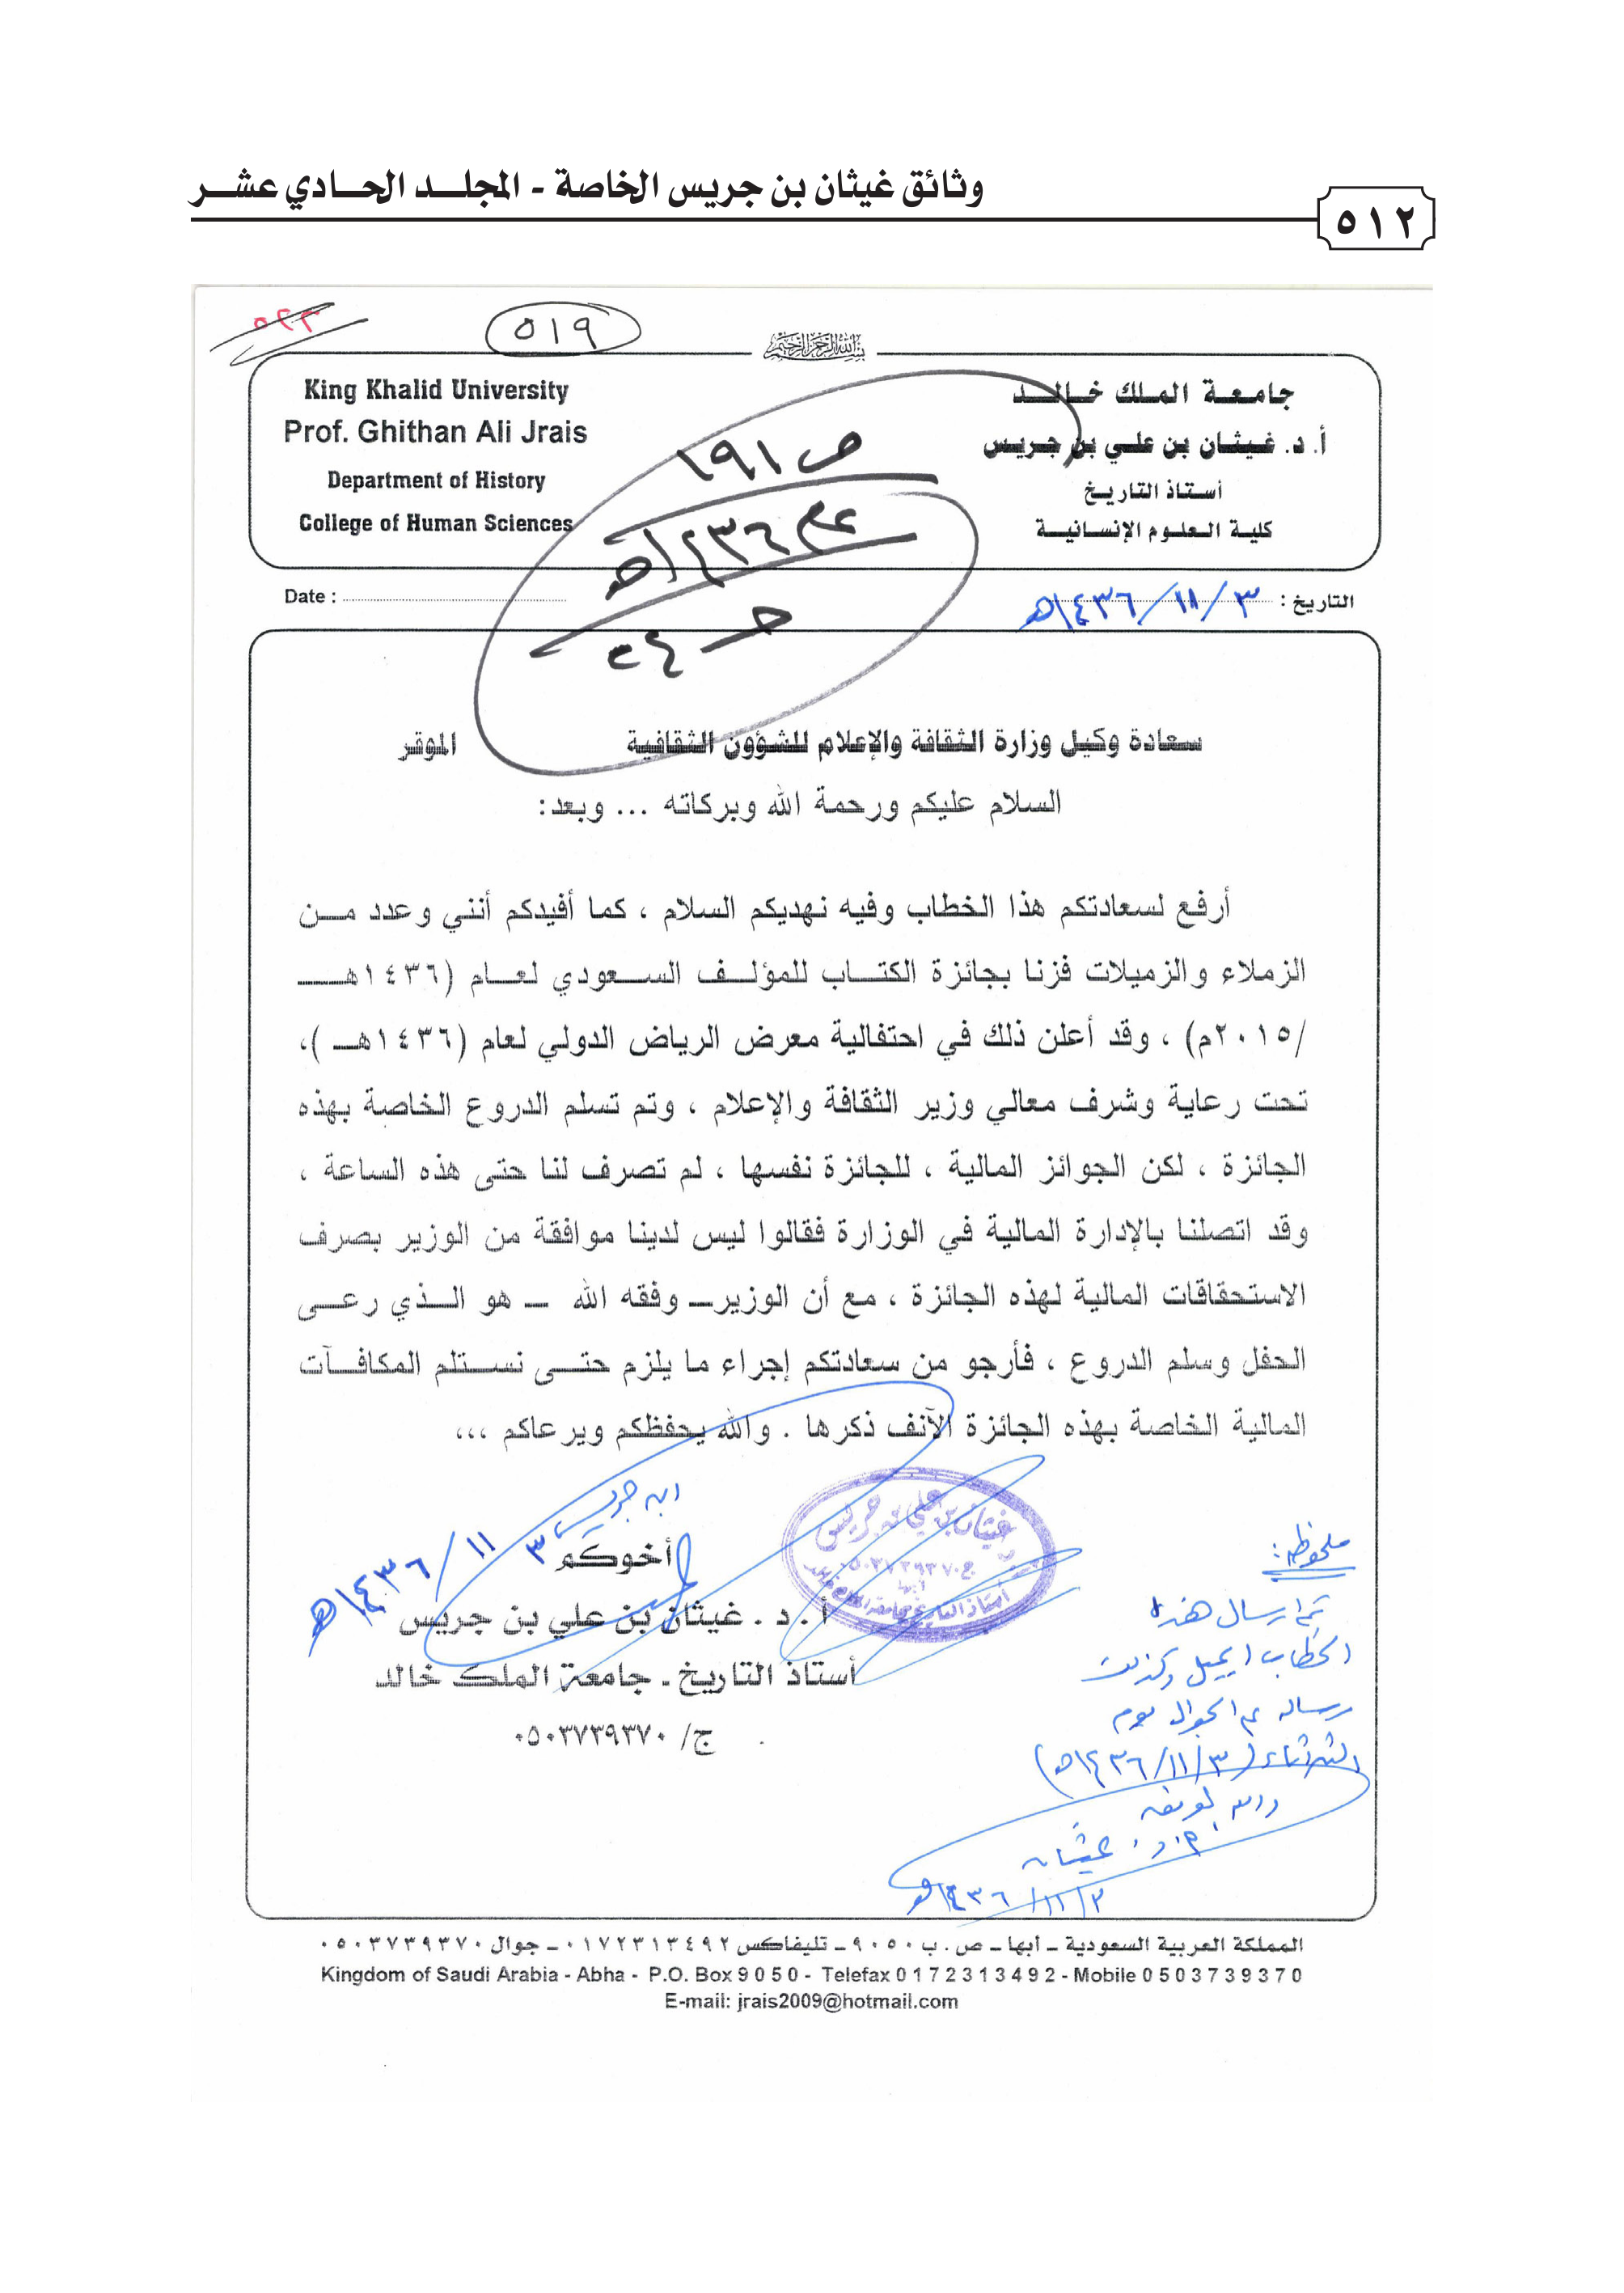 وثائق غيثان بن جريس الخاصة - المجلد الحادي عشر
٥١٢
٥٢٣
٥١٩
بسم الله الرحمن الرحيم
جامعة الملك خالد
أ. د. غيثان بن علي بن جريس
أستاذ التاريخ
كلية العلوم الإنسانية
King Khalid University
Prof. Ghithan Ali Jrais
Department of History
College of Human Sciences
ص ١٩١
عام ١٤٣٦هـ
التاريخ : ٣ / ١١ / ١٤٣٦هـ
Date :
سعادة وكيل وزارة الثقافة والإعلام للشؤون الثقافية الموقر
السلام عليكم ورحمة الله وبركاته ... وبعد:
أرفع لسعادتكم هذا الخطاب وفيه نهديكم السلام ، كما أفيدكم أنني وعدد من
الزملاء والزميلات فزنا بجائزة الكتاب للمؤلف السعودي لعام (١٤٣٦هـ
/٢٠١٥م) ، وقد أعلن ذلك في احتفالية معرض الرياض الدولي لعام (١٤٣٦هـ )،
تحت رعاية وشرف معالي وزير الثقافة والإعلام ، وتم تسلم الدروع الخاصة بهذه
الجائزة ، لكن الجوائز المالية ، للجائزة نفسها ، لم تصرف لنا حتى هذه الساعة ،
وقد اتصلنا بالإدارة المالية في الوزارة فقالوا ليس لدينا موافقة من الوزير بصرف
الاستحقاقات المالية لهذه الجائزة ، مع أن الوزير– وفقه الله – هو الذي رعى
الحفل وسلم الدروع ، فأرجو من سعادتكم إجراء ما يلزم حتى نستلم المكافآت
المالية الخاصة بهذه الجائزة الآنف ذكرها . والله يحفظكم ويرعاكم ،،،
ابن جريس
٣ / ١١ / ١٤٣٦هـ
أخوكم
أ . د . غيثان بن علي بن جريس
أستاذ التاريخ ـ جامعة الملك خالد
ج/ ٠٥٠٣٧٣٩٣٧٠
غيثان بن علي بن جريس
ج ٠٥٠٣٧٣٩٣٧٠
أبها
أستاذ التاريخ بجامعة الملك خالد
ملحوظة:
تم ارسال هذا
الخطاب ايميل وكذلك
رسالة عم الجوال يوم
الثلاثاء (٣/١١/١٤٣٦هـ)
أ.د. غيثان
٣/١١/١٤٣٦هـ
المملكة العربية السعودية ـ أبها ـ ص . ب ٩٠٥٠ ـ تليفاكس ٠١٧٢٣١٣٤٩٢ ـ جوال ٠٥٠٣٧٣٩٣٧٠
Kingdom of Saudi Arabia - Abha - P.O. Box 9 0 5 0 - Telefax 0 1 7 2 3 1 3 4 9 2 - Mobile 0 5 0 3 7 3 9 3 7 0
E-mail: jrais2009@hotmail.com